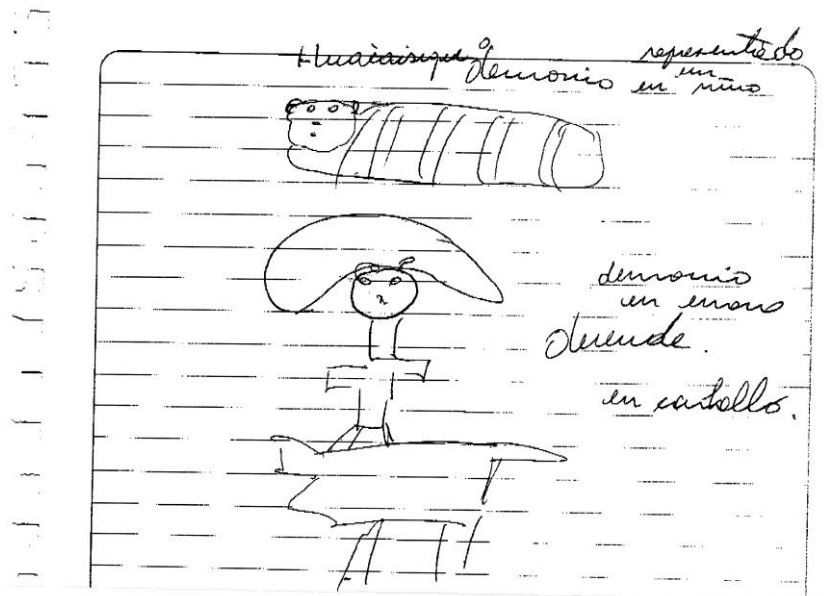 demonio representado
en un niño
demonio
en enano
duende.
en caballo.